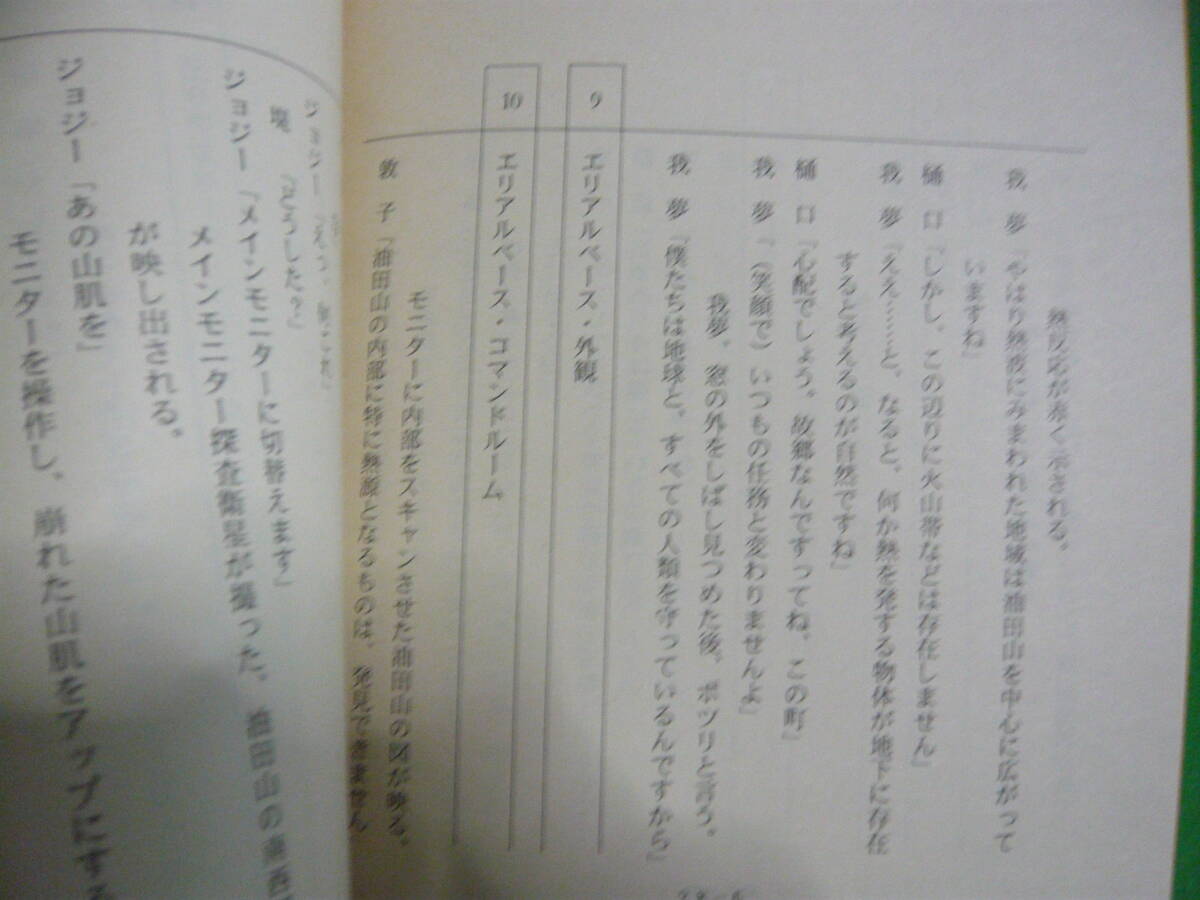 熱反応が赤く示される。
我 夢「やはり熱波にみまわれた地域は油田山を中心に広がって
いますね」
樋 口「しかし、この辺りに火山帯などは存在しません」
我 夢「ええ………と、なると、何か熱を発する物体が地下に存在
すると考えるのが自然ですね」
樋 口「心配でしょう。故郷なんですってね、この町」
我 夢「（笑顔で）いつもの任務と変わりませんよ」
我夢、窓の外をしばし見つめた後、ポツリと言う。
我 夢「僕たちは地球と、すべての人類を守っているんですから」
9 エリアルベース・外観
10 エリアルベース・コマンドルーム
モニターに内部をスキャンさせた油田山の図が映る。
敦 子「油田山の内部に特に熱源となるものは、発見できません
ジョジー
堤 「どうした？」
ジョジー「メインモニターに切替えます」
メインモニター探査衛星が撮った、油田山の南西
が映し出される。
ジョジー「あの山肌を」
モニターを操作し、崩れた山肌をアップにする